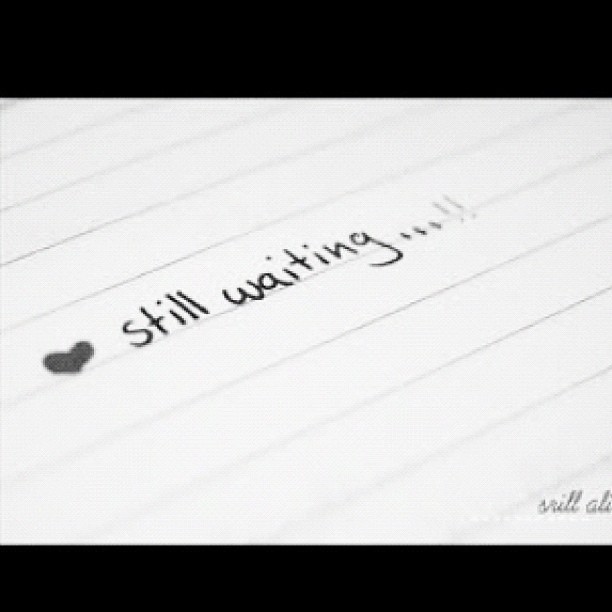 still waiting...!!
srill ali